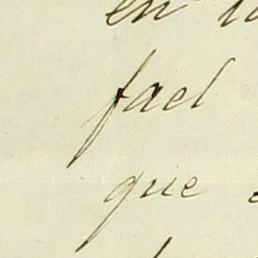 en
fael
que